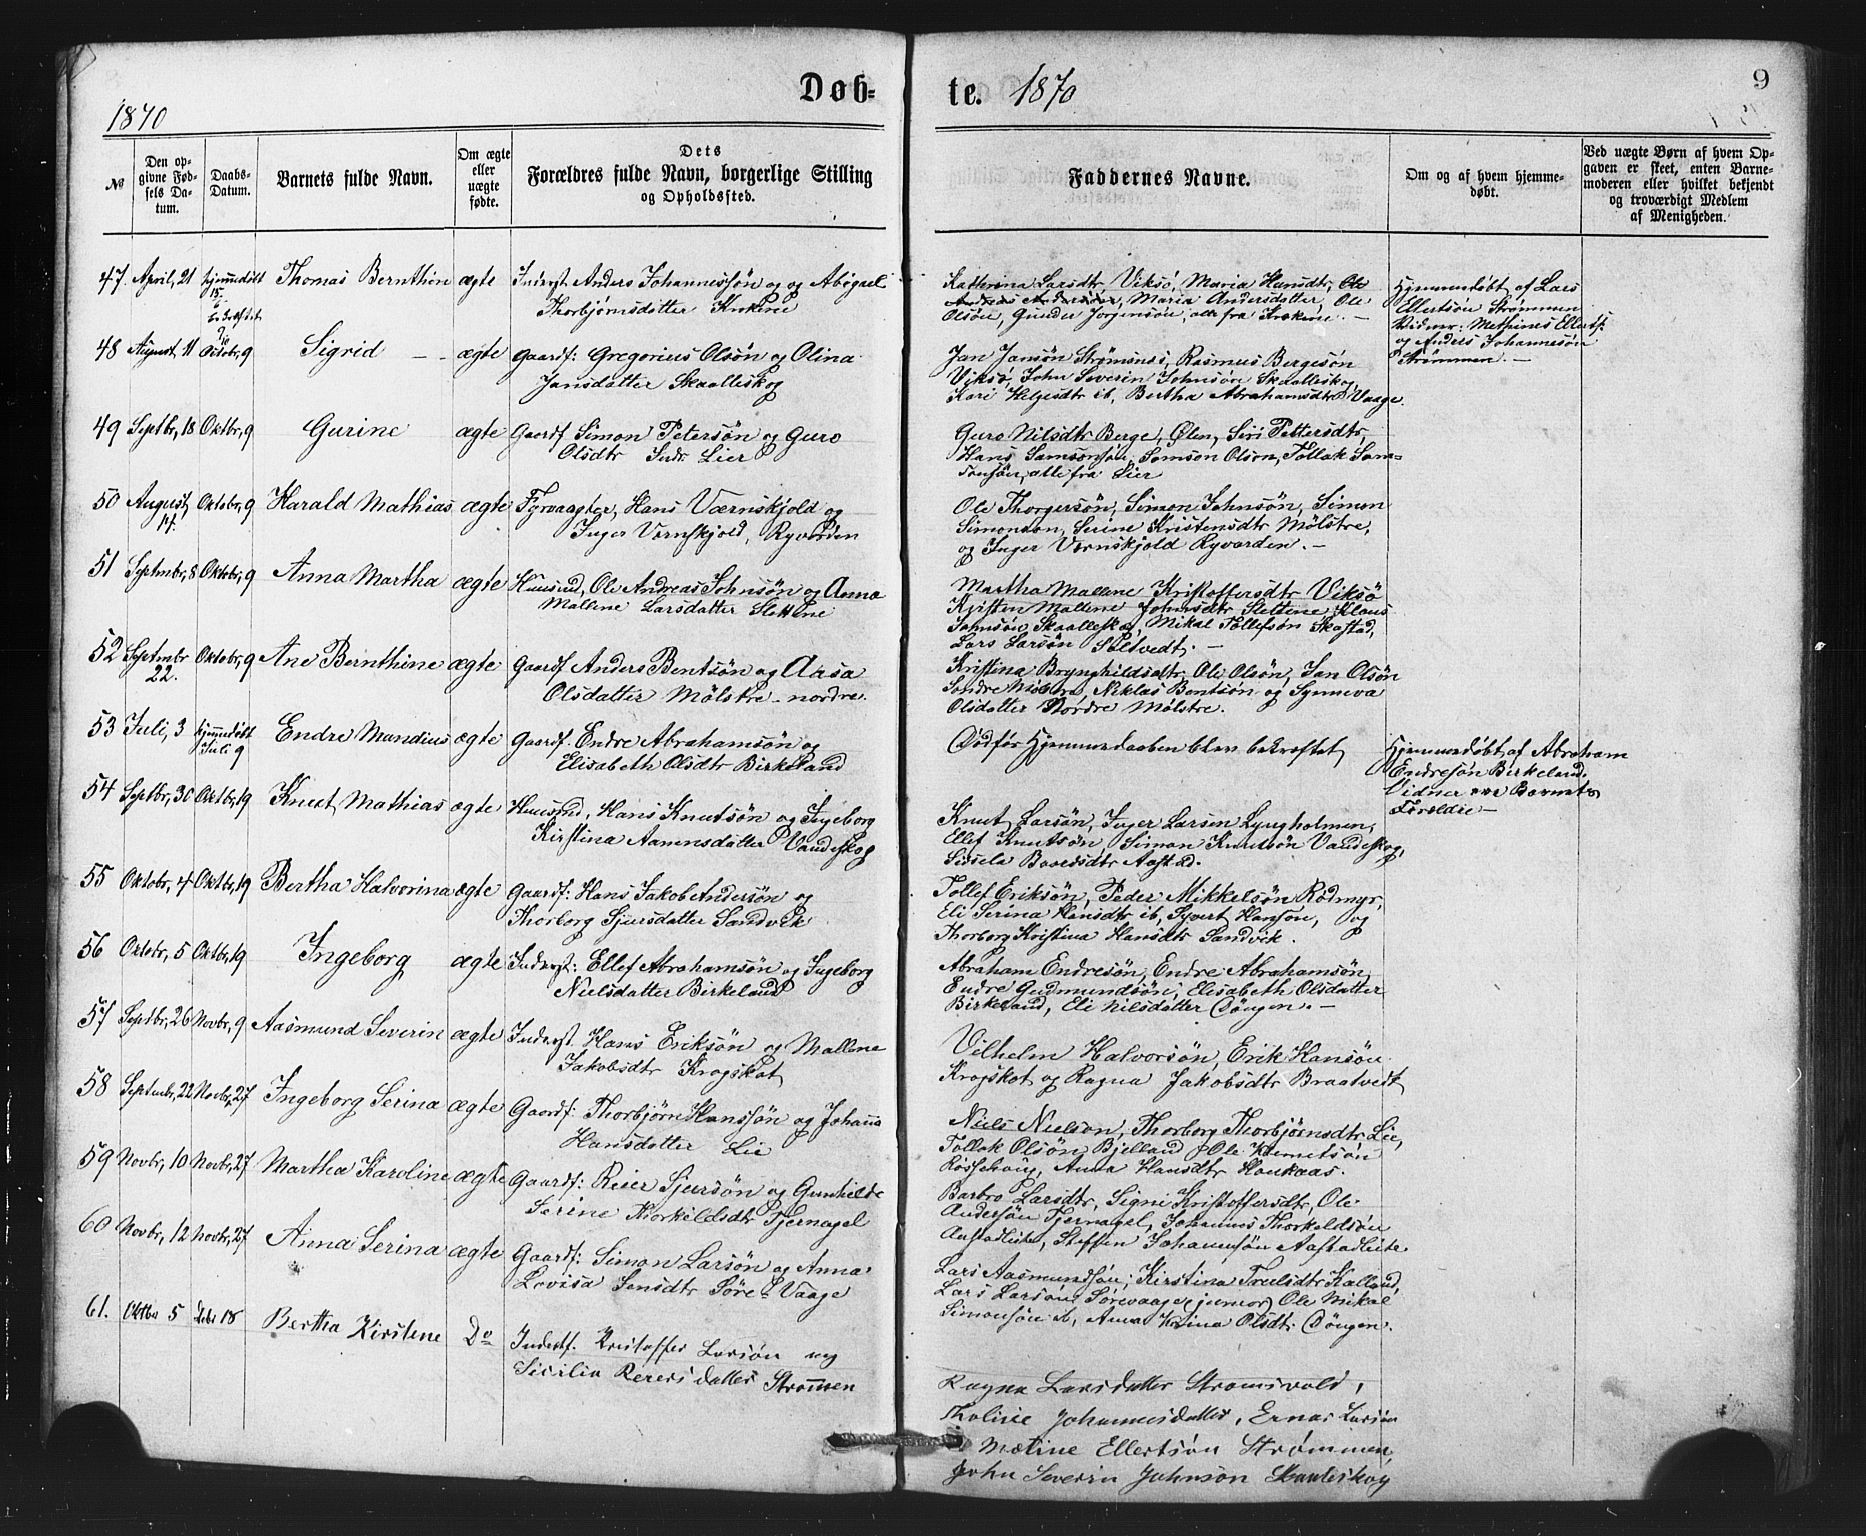 Døb-
te. 1870
9
1870
№
Den opgivne Fødsels Datum.
Daabs-Datum.
Barnets fulde Navn.
Om ægte eller uægte fødte.
Dets Forældres fulde Navn, borgerlige Stilling og Opholdssted.
Faddernes Navne.
Om og af hvem hjemmedøbt.
Ved uægte Børn af hvem Opgaven er skeet, enten Barnemoderen eller hvilket bekjendt og troværdigt Medlem af Menigheden.
47 April, 21 hjemmedøbt 15/6 Thomas Bernthin ægte Inderst Anders Johannessøn og og Abigael
Thorbjørnsdatter
Katherina Larsdtr Viksø, Maria Hansdtr, Ole
Andreas Andersøn, Maria Andersdatter, Ole
Olsøn, Gunder Jørgensøn, alle fra
Hjemmedøbt af Lars
Ellertsøn Strømmen
Vidner: Mathines Ellerts:
og Anders Johannesøn
Strømmen. –
48 August, 11 Octobr, 9 Sigrid – – ægte Gaardf: Gregorius Olsøn og Olina
Jansdatter Skaalleskog
Jan Jansøn Strømsnes, Rasmus Bergesøn
Viksø, John Severin Johnsøn Skaalleskog,
Kari Helgesdtr ib, Bertha Abrahamsdtr Vaage.
49 Septbr, 18 Oktbr, 9 Gurine ægte Gaardf Simon Petersøn og Guro
Olsdtr Indr Lier
Guro Nilsdtr Berge, Ølen, Siri Pettersdtr,
Hans Samsonsøn, Samson Olson, Tollak Sam-
sonsøn, alle fra Lier
50 August, 14. Oktobr, 9 Harald Mathias ægte Fyrvaagter, Hans Værnskjold og
Inger Vernskjold, Ryvarden
Ole Thorgersøn, Simon Johnsøn, Simon
Simonson, Serine Kristensdtr Mølstre,
og Inger Vernskjold Ryvarden. –
51 Septmbr, 8 Oktobr, 9 Anna Martha ægte Huusmd, Ole Andreas Johnsøn og Anna
Mallene Larsdatter Slettene
Martha Mallene Kristoffersdtr Viksø
Kristen Mallene Johnsdtr Slettene, Klaus
Johnsøn Skaalleskog, Mikal Tollefsøn Skoftad,
Lars Larsøn Saltvedt. –
52 Septmbr 22. Oktobr, 9 Ane Bernthine ægte Gaardf Anders Bentsøn og Aasa
Olsdatter Mølstre – nordre.
Kristina Brynghildsdtr, Ole Olsøn, Jan Olsøn
Søndre Mølstre, Niklas Bentsøn og Synneva
Olsdatter Nordre Mølstre.
53 Juli, 3 hjemmedøbt Juli 9 Endre Mundius ægte Gaardf. Endre Abrahamsøn og
Elisabeth Olsdtr Birkeland
Død før Hjemmedaaben blev bekræftet,
Hjemmedøbt af Abraham
Endresøn Birkeland.
Vidner var Barnets
Forældre –
54 Septbr, 30 Oktbr, 19 Knut Mathias ægte Huusmd, Hans Knutsøn og Ingeborg
Kirstina Aamensdatter Vandeskog
Knut Larsøn, Inger Larsen Lyngholmen,
Ellef Knutsøn, Simon Knutsøn Vandeskog,
Sissela Baardsdtr Aastad.
55 Oktobr, 4 Oktbr, 19 Bertha Halvorina ægte Gaardf: Hans Jakob Andersøn og
Thorborg Sjursdatter Sandvik
Tollef Eriksøn, Peder Mikkelsøn Rødmyr,
Eli Serina Hansdtr ib, Syvert Hanson, og
Thorborg Kristina Hansdtr Sandvik.
56 Oktobr, 5 Oktbr, 19 Ingeborg ægte Inderst: Ellef Abrahamsøn og Ingeborg
Nielsdatter Birkeland
Abraham Endresøn, Endre Abrahamsøn,
Endre Gudmundsøn, Elisabeth Olsdatter
Birkeland, Eli Nilsdatter Døngen. –
57 Septbr, 26 Novbr, 9 Aasmund Severin ægte Inderst Hans Eriksøn og Mallene
Jakobsdtr Krogskot
Vilhelm Halvorsøn, Erik Hansøn
Krogskot og Ragna Jakobsdtr Braatvedt
58 Septembr, 22 Novbr, 27 Ingeborg Serina ægte Gaardf: Thorbjørn Hanssøn og Johanna
Hansdatter Lie
Niels Nielson, Thorborg Thorbjørnsdtr Lie,
Tollak Olsøn Bjelland, Ole Klemetsøn
Anna Hansdtr Haukaas.
59 Novbr, 10 Novbr, 27 Martha Karoline ægte Gaardf: Reier Sjursøn og Gunhilde
Serine Thorkeldsdtr Tjernagel
Barbro Larsdtr, Signi Kristoffersdtr, Ole
Andersøn Tjernagel, Johannes Thorkeldsøn
Aastadleite, Steffen Johannsøn Aastadleite.
60 Novbr, 12 Novbr, 27 Anna Serina ægte Gaardf: Simon Larsøn og Anna
Lovisa Jensdtr Søre-Vaage
Lars Aasmundsøn, Kirstina Truelsdtr Kalland,
Lars Larsøn Sørevaage (junior) Ole Mikal
Simonsøn ib, Anna Olsdtr Døngen.
61. Oktbr 5 Debr 18 Bertha Kirstene Do Inderst. Kristoffer Larsøn og
Sicilia Reiersdatter Strømmen
Ragna Larsdatter Strømsvold,
Tholine Johannesdatter, Ernar Larsøn
Mætine Ellertsøn Strømmen,
John Severin Johnsøn Skaaleskog